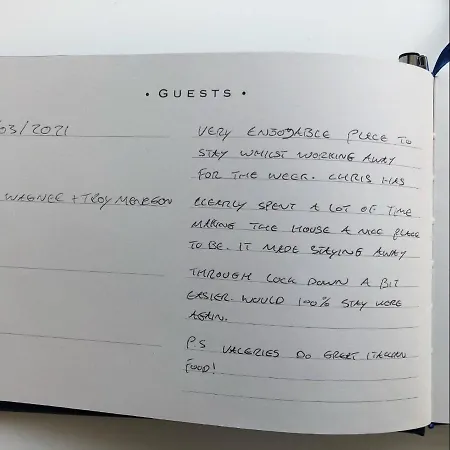 • GUESTS •
/03/2021
WAGNEE + TROY
VERY ENJOYABLE PLACE TO
STAY WHILST WORKING AWAY
FOR THE WEEK. CHRIS HAS
CLEARLY SPENT A LOT OF TIME
MAKING THE HOUSE A NICE PLACE
TO BE. IT MADE STAYING AWAY
THROUGH LOCK DOWN A BIT
EASIER. WOULD 100% STAY HERE
AGAIN.
PS VALERIES DO GREAT ITALIAN
FOOD!